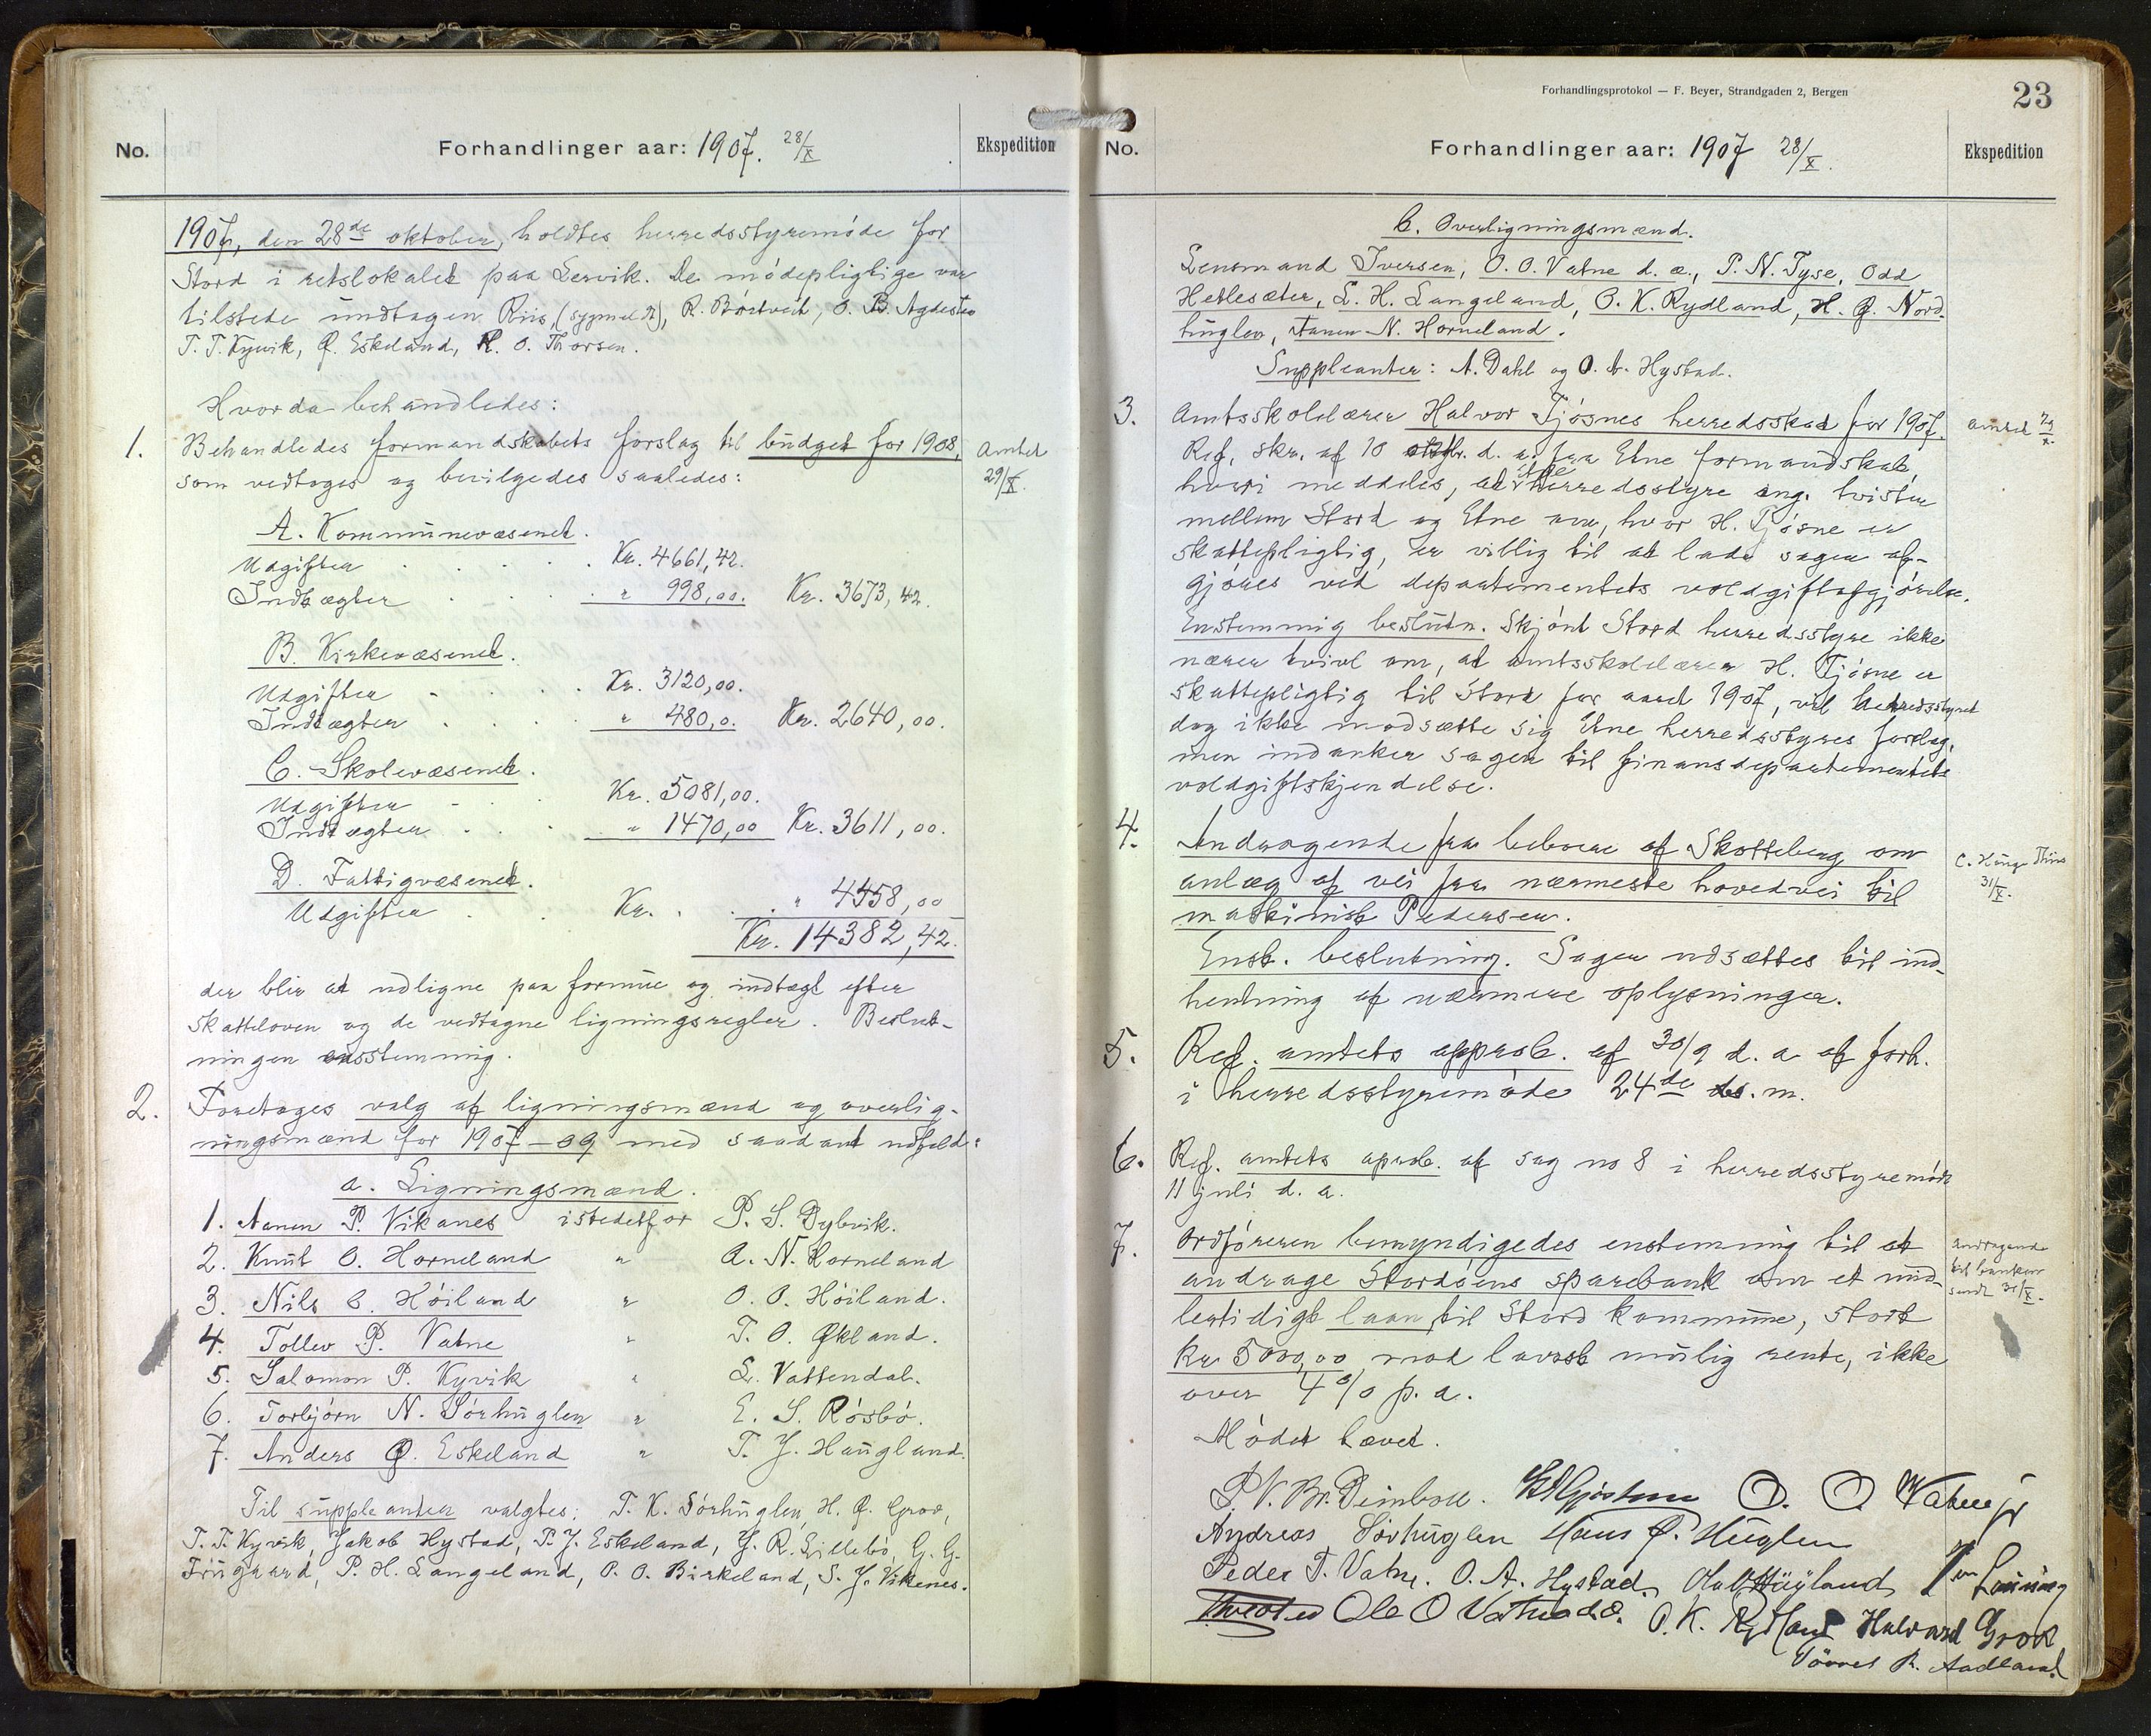 No.
Forhandlinger aar: 1907. 28/X
Ekspedition
1907, den 28de oktober, holdtes herredsstyremøde for
Stord i retslokalet paa Lervik. De mødepligtige var
tilstede undtagen Riis (sygmeldt), R. Børtveit, O. B. Agdesten
T. T. Kyvik, Q. Eskeland, R. O. Thorsen.
Hvorda behandledes:
1. Behandledes formandskabets forslag til budget for 1908, Amtet
som vedtoges og bevilgedes saaledes: 29/X.
A. Kommunevæsenet.
Udgifter . . . . . Kr. 4661,42.
Indtægter . . . . . " 998,00. Kr. 3673,42.
B. Kirkevæsenet.
Udgifter . . . . Kr. 3120,00.
Indtægter . . . . " 480,0. Kr. 2640,00.
C. Skolevæsenet.
Udgifter . . . Kr. 5081,00.
Indtægter . . . . " 1470,00 Kr. 3611,00.
D. Fattigvæsenet.
Udgifter . . Kr. . . . " 4458,00
Kr. 14382,42.
der blir at udligne paa formue og indtægt efter
skatteloven og de vedtagne ligningsregler. Beslut-
ningen enstemmig.
2. Foretoges valg af ligningsmænd og overlig-
ningsmænd for 1907–09 med saadant udfald:
a. Ligningsmænd.
1. Aanen P. Vikanes istedetfor P. S. Dybvik.
2. Knut O. Horneland " A. N. Horneland
3. Nils O. Høiland " O. O. Høiland.
4. Tollev P. Vatne " T. O. Økland.
5. Salomon P. Kyvik " L. Vattendal.
6. Torbjørn N. Sørhuglen " E. S. Røsbø.
7. Anders Q. Eskeland " T. J. Haugland.
Til suppleanter valgtes: T. K. Sørhuglen, H. Q. Grov,
T. T. Kyvik, Jakob Hystad, T. J. Eskeland, J. R. Gillebø, G. G.
Frugaard, P. H. Langeland, P. O. Birkeland, S. J. Vikenes.
Forhandlingsprotokol — F. Beyer, Strandgaden 2, Bergen
23
No.
Forhandlinger aar: 1907 28/X.
Ekspedition
b. Overligningsmænd.
Lensmand Iversen, O. O. Vatne d. æ., P. N. Tyse, Odd
Hetlesæter, L. H. Langeland, O. K. Rydland, H. Q. Nord-
huglen, Aanen N. Horneland.
Suppleanter: A. Dahl og O. A. Hystad.
3. Amtsskolelærer Halvor Tjøsnes herredsskat for 1907.
Ref. skr. af 10 d. a. fra Etne formandskab,
hvori meddeles, at herredsstyre ang. tvisten
mellem Stord og Etne om, hvor H. Tjøsne er
skattepligtig, er villig til at lade sagen af-
gjøres ved departementets voldgiftafgjørelse.
Enstemmig beslutn. Skjønt Stord herredsstyre ikke
nærer tvivl om, at amtsskolelærer H. Tjøsne er
skattepligtig til Stord for aaret 1907, vil herredsstyret
dog ikke modsætte sig Etne herredsstyres forslag,
men indanker sagen til finansdepartementets
voldgiftskjendelse.
4. Andragende fra beboere af Skotteberg om
anlæg af vei fra nærmeste hovedvei til
maskinist Pedersen.
31/X.
Enst. beslutning. Sagen udsættes til ind-
hentning af nærmere oplysninger.
5. Ref. amtets approb. af 30/9 d. a af forh.
i herredsstyremøde 24de ds. m.
6. Ref. amtets aprob. af sag no 8 i herredsstyremøde
11 juli d. a.
7. Ordføreren bemyndigedes enstemmig til at
andrage Stordøens sparebank om et mid-
lertidigt laan til Stord kommune, stort
kr 5000,00 mod lavest mulig rente, ikke
over 4 % p. a.
andragende
til banken
sendt 31/X.
Mødet hævet.
O. O Vatne jr
Andreas Sørhuglen Hans Q. Huglen
Peder T. Vatne. O. A. Hystad. Olav Høyland
Ole O Vatne d. æ. O. K. Rydland Halvard Grov
R. Aadland